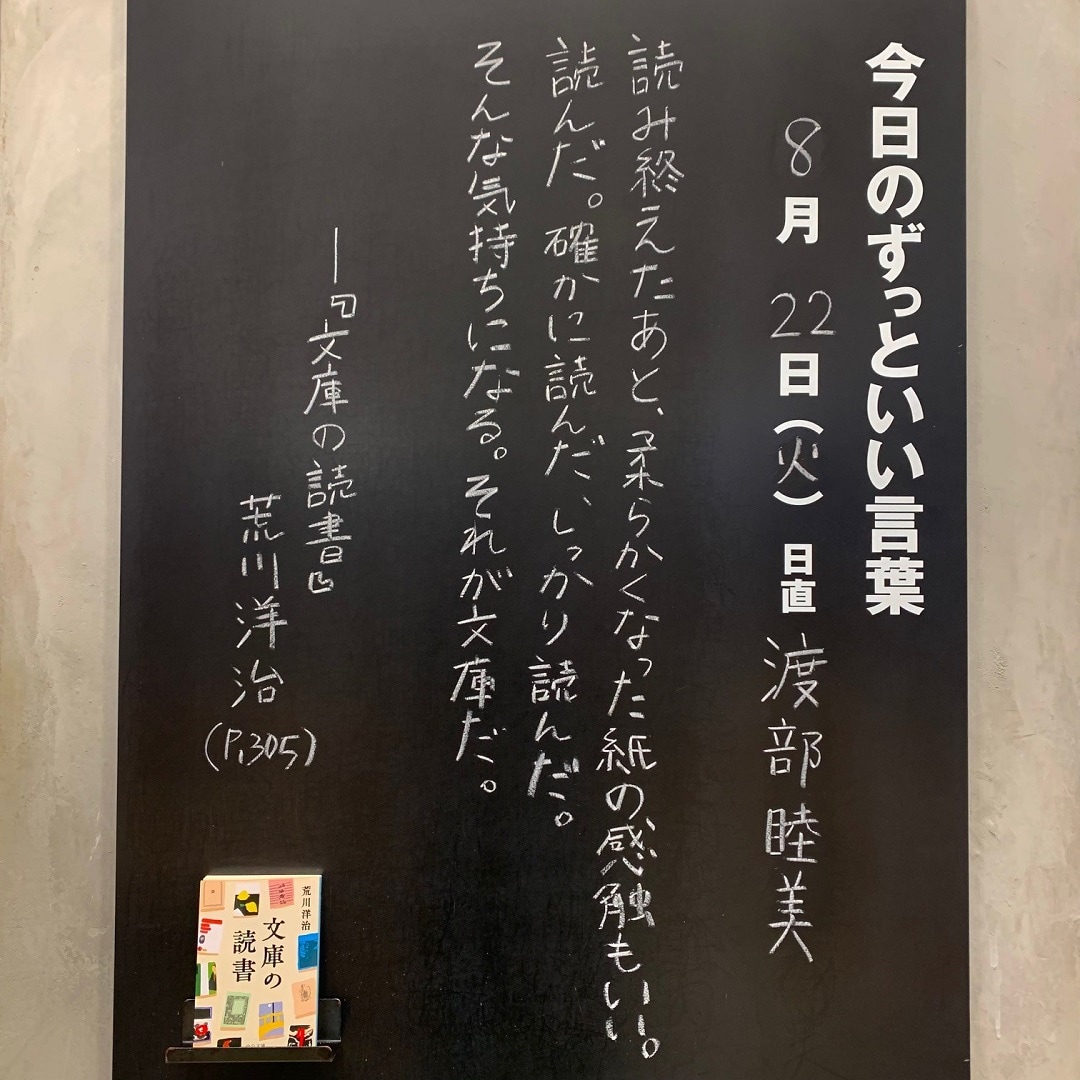 今日のずっといい言葉
8月22日(火) 日直 渡部睦美
読み終えたあと、柔らかくなった紙の感触もいい。
読んだ。確かに読んだ、しっかり読んだ。
そんな気持ちになる。それが文庫だ。
―『文庫の読書』
荒川洋治
(P.305)
荒川洋治
文庫の
読書